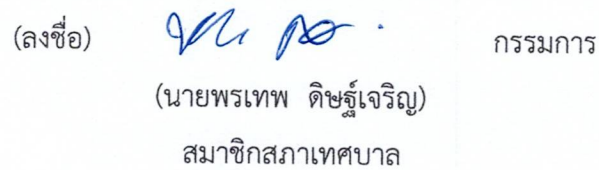 (ลงชื่อ) กรรมการ
(นายพรเทพ ดิษฐ์เจริญ)
สมาชิกสภาเทศบาล